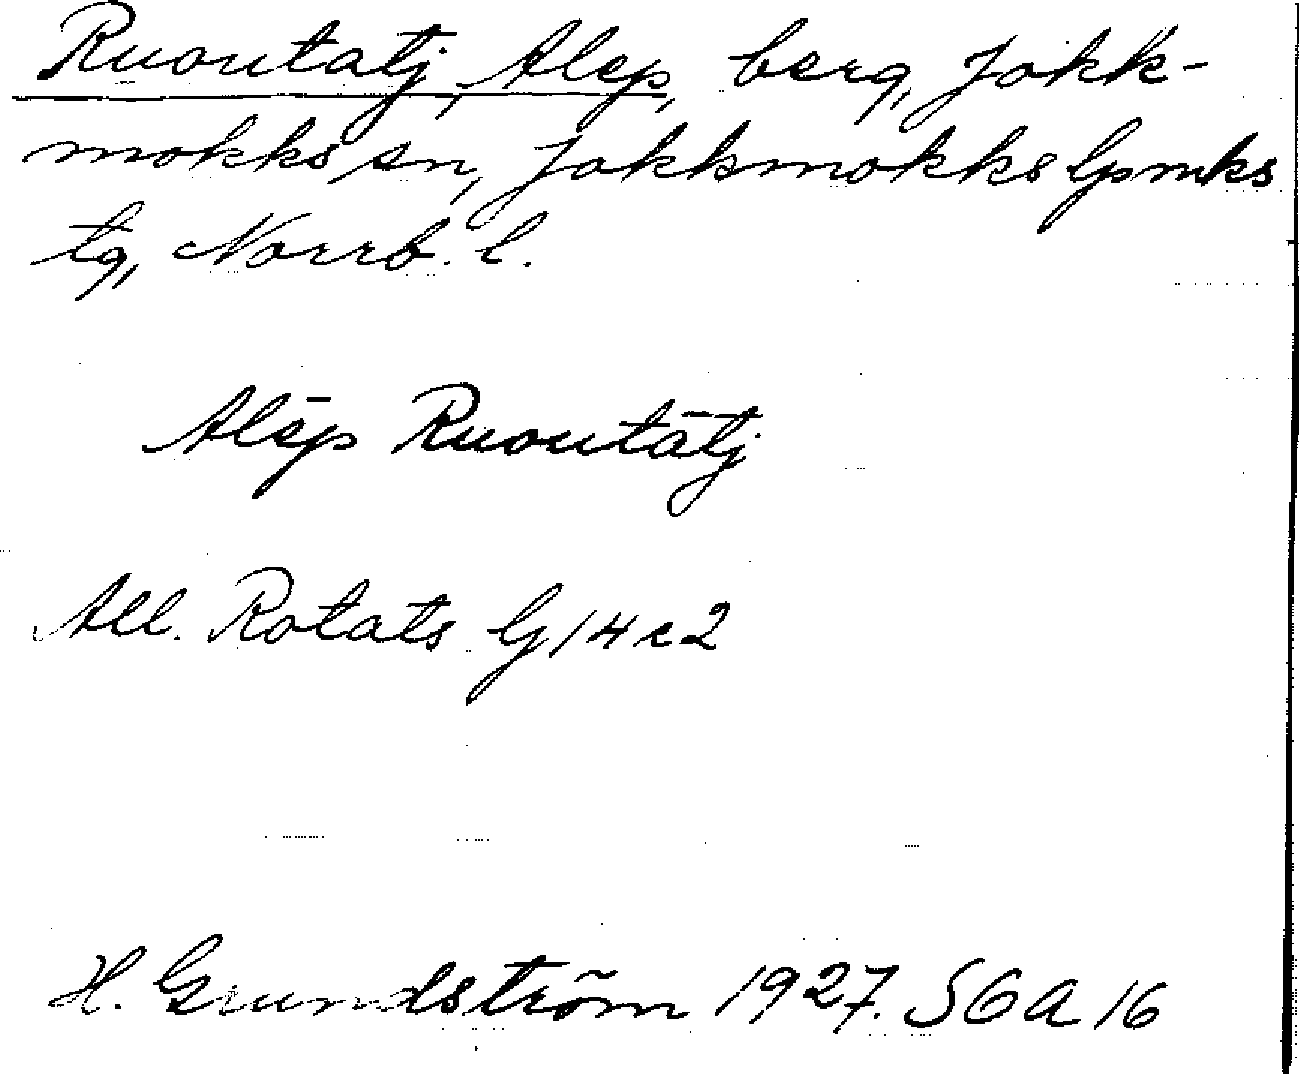 Ruoutatj, Alep, berg, Jokk-
mokks sn, Jokkmokks lpmks
tg, Norrb. l.
Alēp Ruoutātj
All. Rotats G 14 c 2
H. Grundström 1927. SGA 16